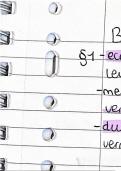 B
§1 - ec
le
- me
ve
- du
ver